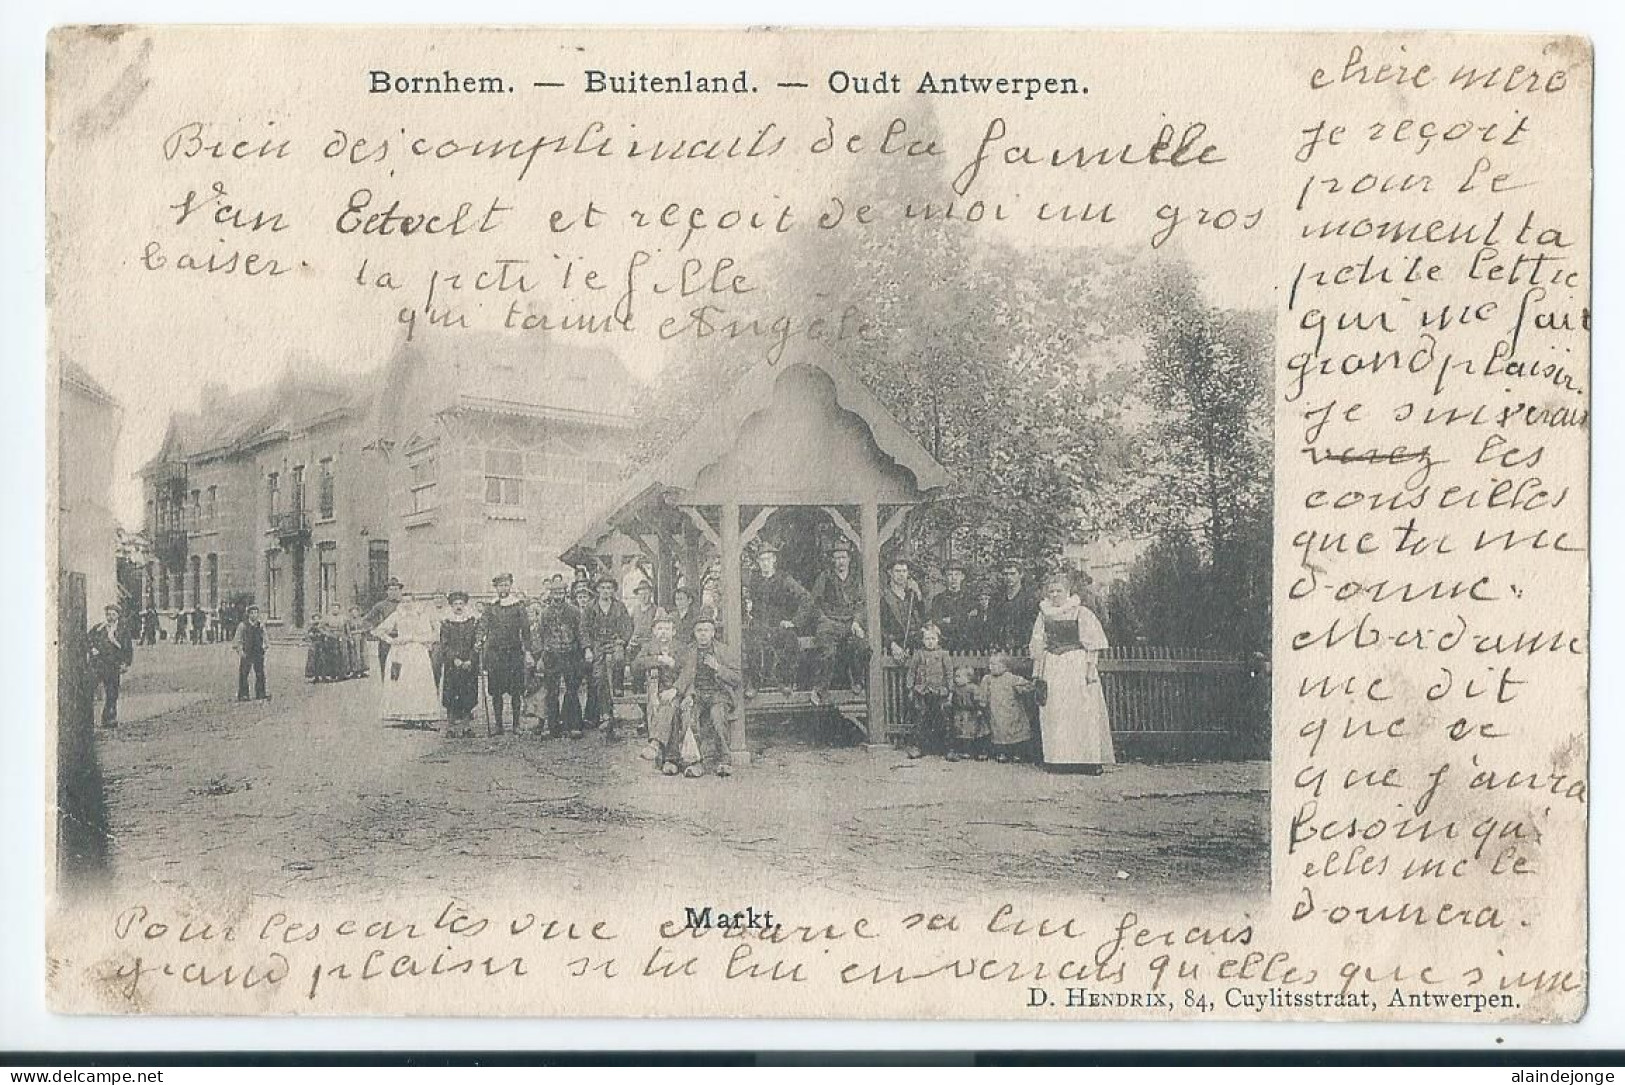 Bornhem. — Buitenland. — Oudt Antwerpen.
chère mère
je reçoit
pour le
moment ta
petite lettre
qui me fait
grand plaisir.
je suiverais
verez les
conseilles
que tu me
donne.
Madame
me dit
que ce
que j'aura
besoin qu'
elles me le
donnera.
Bien des compliments de la famille
Van Edvelt et reçoit de moi un gros
baiser. ta petite fille
qui t'aime Angèle
Markt.
Pour les cartes vue Marie sa lui ferais
grand plaisir si tu lui en verrais qu'elles que s'une
D. Hendrix, 84, Cuylitsstraat, Antwerpen.
delcampe.net
alaindejonge